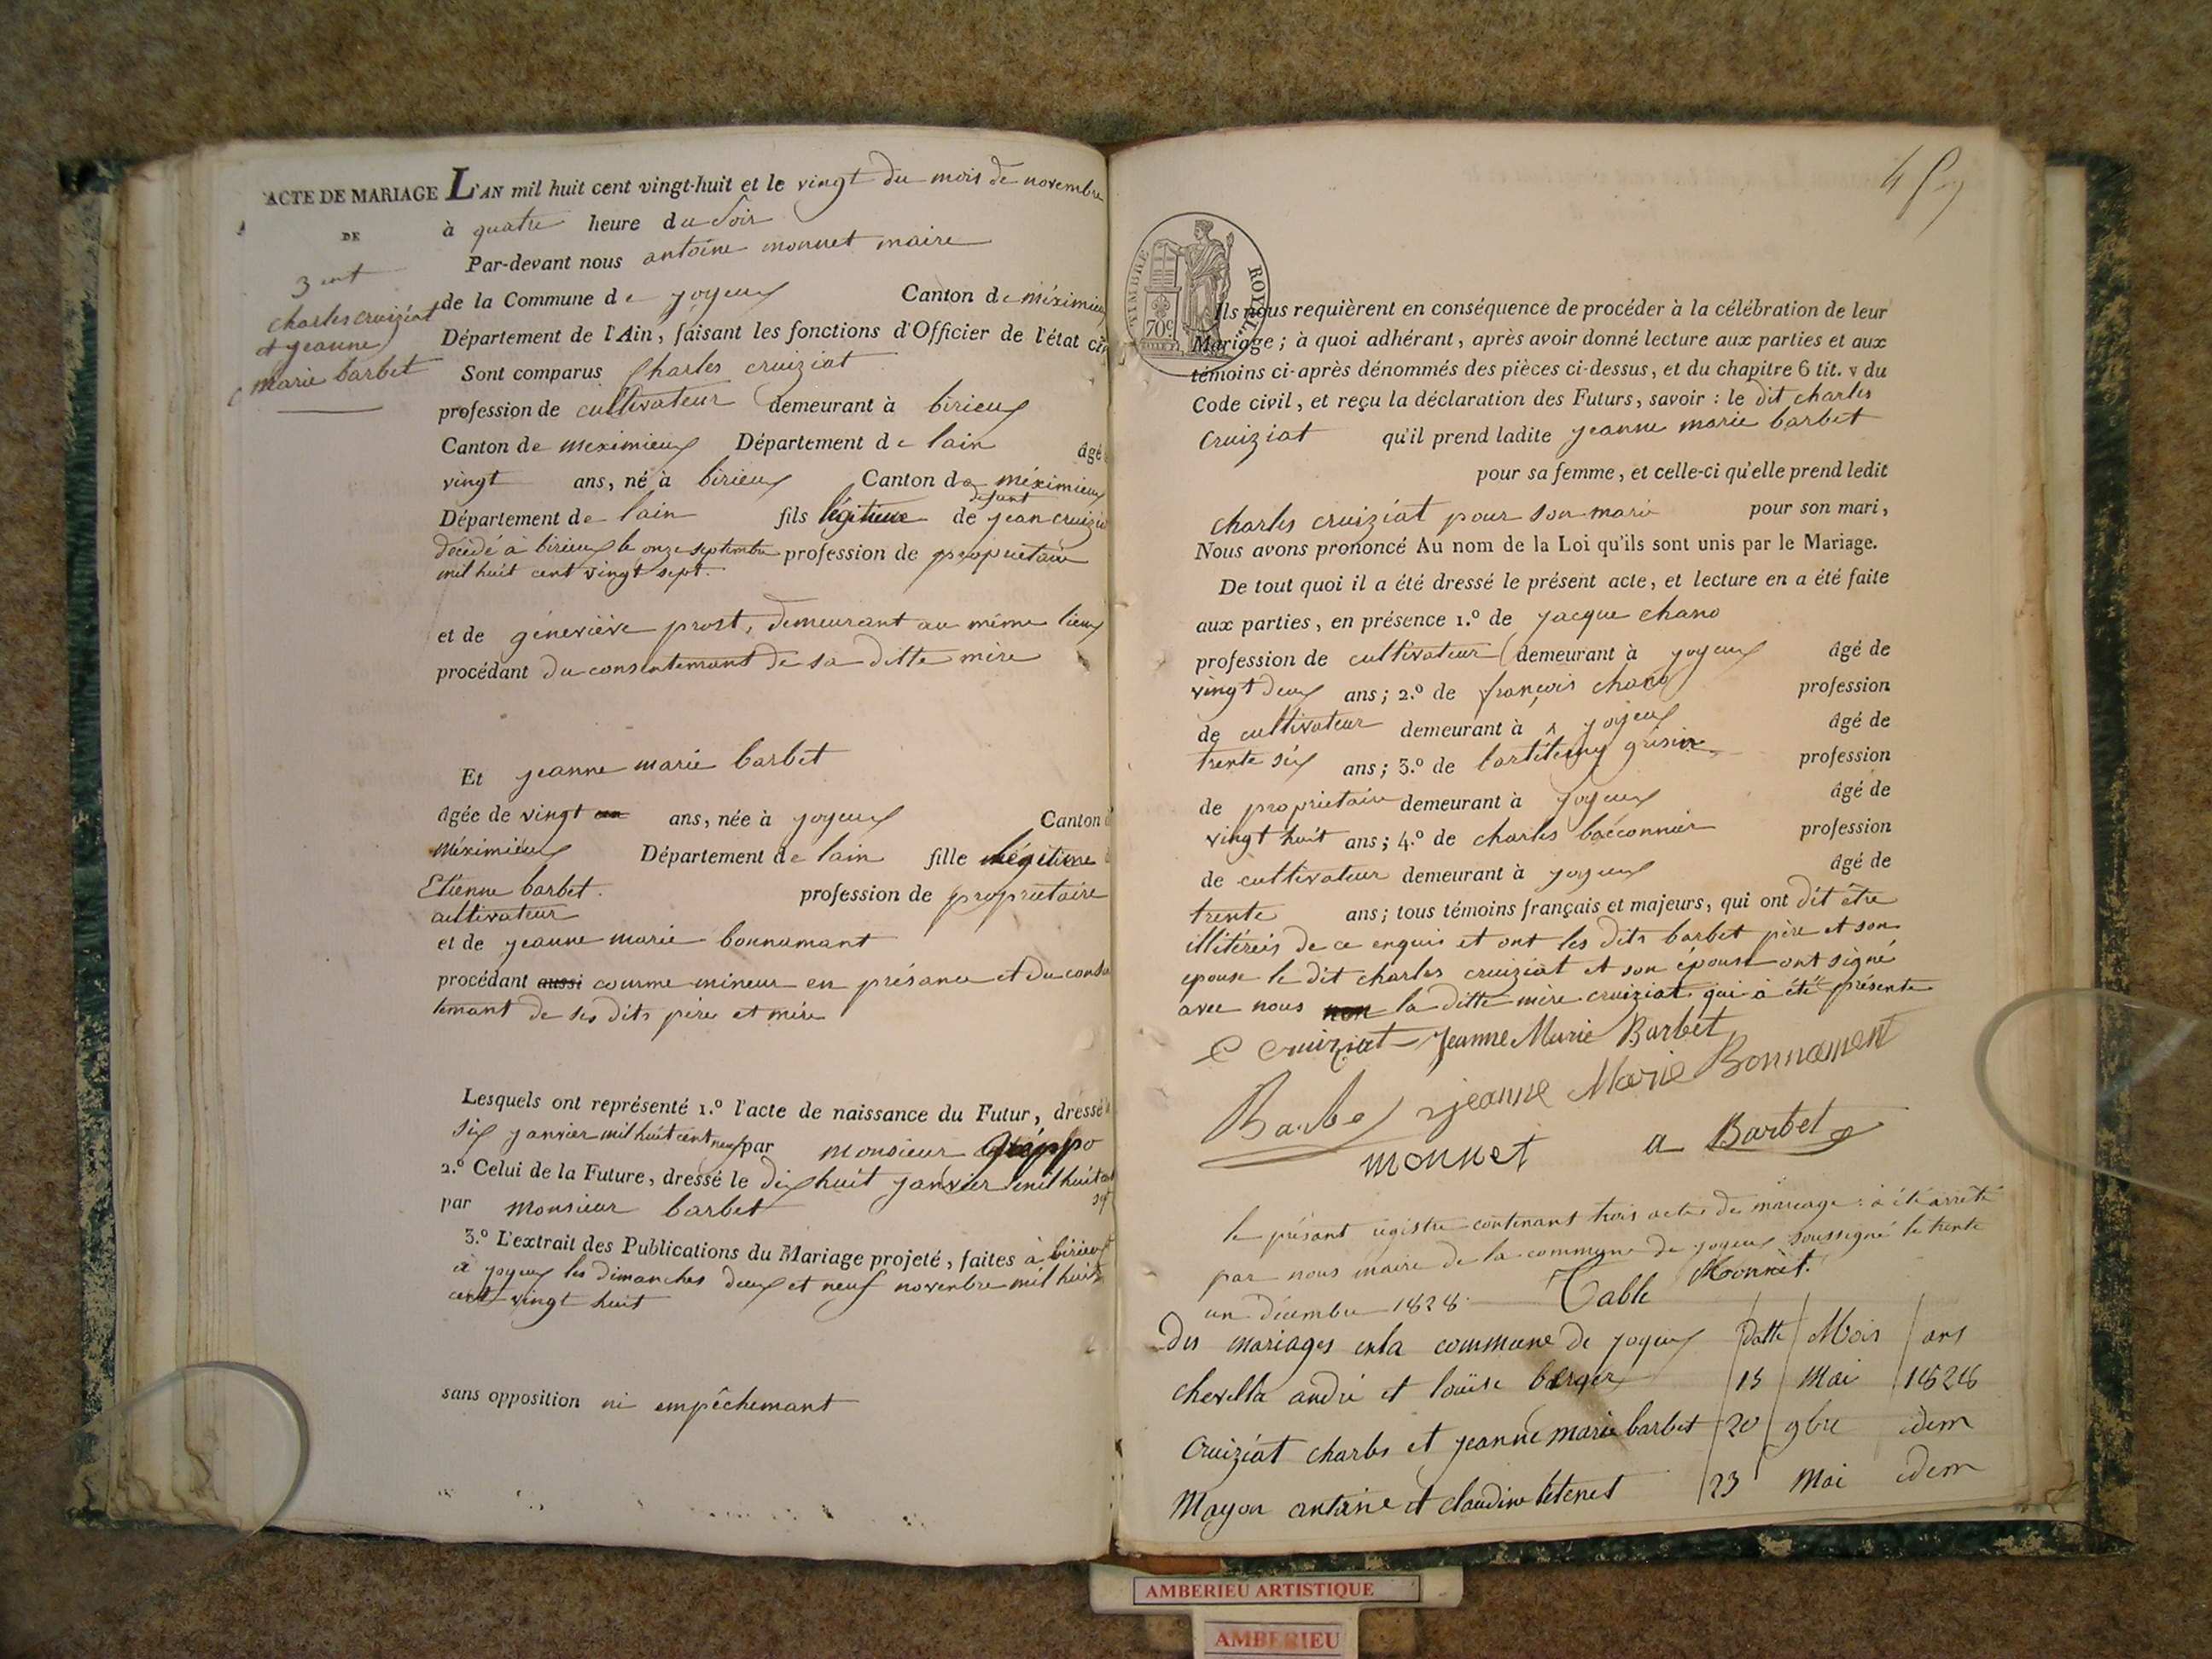 ACTE DE MARIAGE
DE
charles cruiziat
et jeanne
marie barbet
L'AN mil huit cent vingt-huit et le vingt du mois de novembre
à quatre heure du soir
Par-devant nous antoine monnet maire
de la Commune de joyeux Canton de méximieux
Département de l'Ain, faisant les fonctions d'Officier de l'état
Sont comparus Charles cruiziat
profession de cultivateur demeurant à birieux
Canton de meximieux Département de lain âgé
vingt ans, né à birieux Canton de méximieux
défunt
Département de lain fils légitime de jean
décédé à birieux le onze septembre profession de propriétaire
mil huit cent vingt sept.
et de géneviève prost, demeurant au même lieux
procédant du consentemant de sa ditte mère
Et jeanne marie barbet
âgée de vingt ans, née à joyeux Canton
méximieux Département de lain fille légitime
Etienne barbet. profession de propriétaire
cultivateur
et de jeanne marie bonnamant
procédant aussi comme mineur en présance et du
temant de ses dits père et mère
Lesquels ont représenté 1.º l'acte de naissance du Futur, dressé
six janvier mil huit cent neuf par monsieur
2.º Celui de la Future, dressé le dix huit janvier mil huit cent
sept
par monsieur barbet
3.º L'extrait des Publications du Mariage projeté, faites à birieux
à joyeux les dimanches deux et neuf novembre mil huit
cent vingt huit
sans opposition ni empêchemant
TIMBRE ROYAL
70c
Ils nous requièrent en conséquence de procéder à la célébration de leur
Mariage; à quoi adhérant, après avoir donné lecture aux parties et aux
témoins ci-après dénommés des pièces ci-dessus, et du chapitre 6 tit. v du
Code civil, et reçu la déclaration des Futurs, savoir : le dit charles
Cruiziat qu'il prend ladite jeanne marie barbet
pour sa femme, et celle-ci qu'elle prend ledit
charles cruiziat pour son mari pour son mari,
Nous avons prononcé Au nom de la Loi qu'ils sont unis par le Mariage.
De tout quoi il a été dressé le présent acte, et lecture en a été faite
aux parties, en présence 1.º de jacque chano
profession de cultivateur demeurant à joyeux âgé de
vingt deux ans; 2.º de françois chano profession
de cultivateur demeurant à joyeux âgé de
trente six ans; 3.º de profession
de propriétaire demeurant à joyeux âgé de
vingt huit ans; 4.º de charles baéconnier profession
de cultivateur demeurant à joyeux âgé de
trente ans; tous témoins français et majeurs, qui ont dit être
illitéreis de ce enquis et ont les dits barbet père et son
epouse le dit charles cruiziat et son épouse ont signé
avec nous non la ditte mère cruiziat qui à été présente
C Cruiziat Jeanne Marie Barbet
Barbet jeanne Marie Bonnament
monnet a Barbet
le présant régistre contenant trois actes de mareage : à été arrêté
par nous maire de la commune de joyeux soussigné le trente
un décembre 1828. Monnet.
Table
Des mariages enla commune de joyeux Datte Mois ans
chevella andré et louise berger 15 Mai 1828
Cruiziat charles et jeanne marie barbet 20 9bre idem
Mayon antoine et claudine 23 Mai idem
AMBERIEU ARTISTIQUE
AMBERIEU